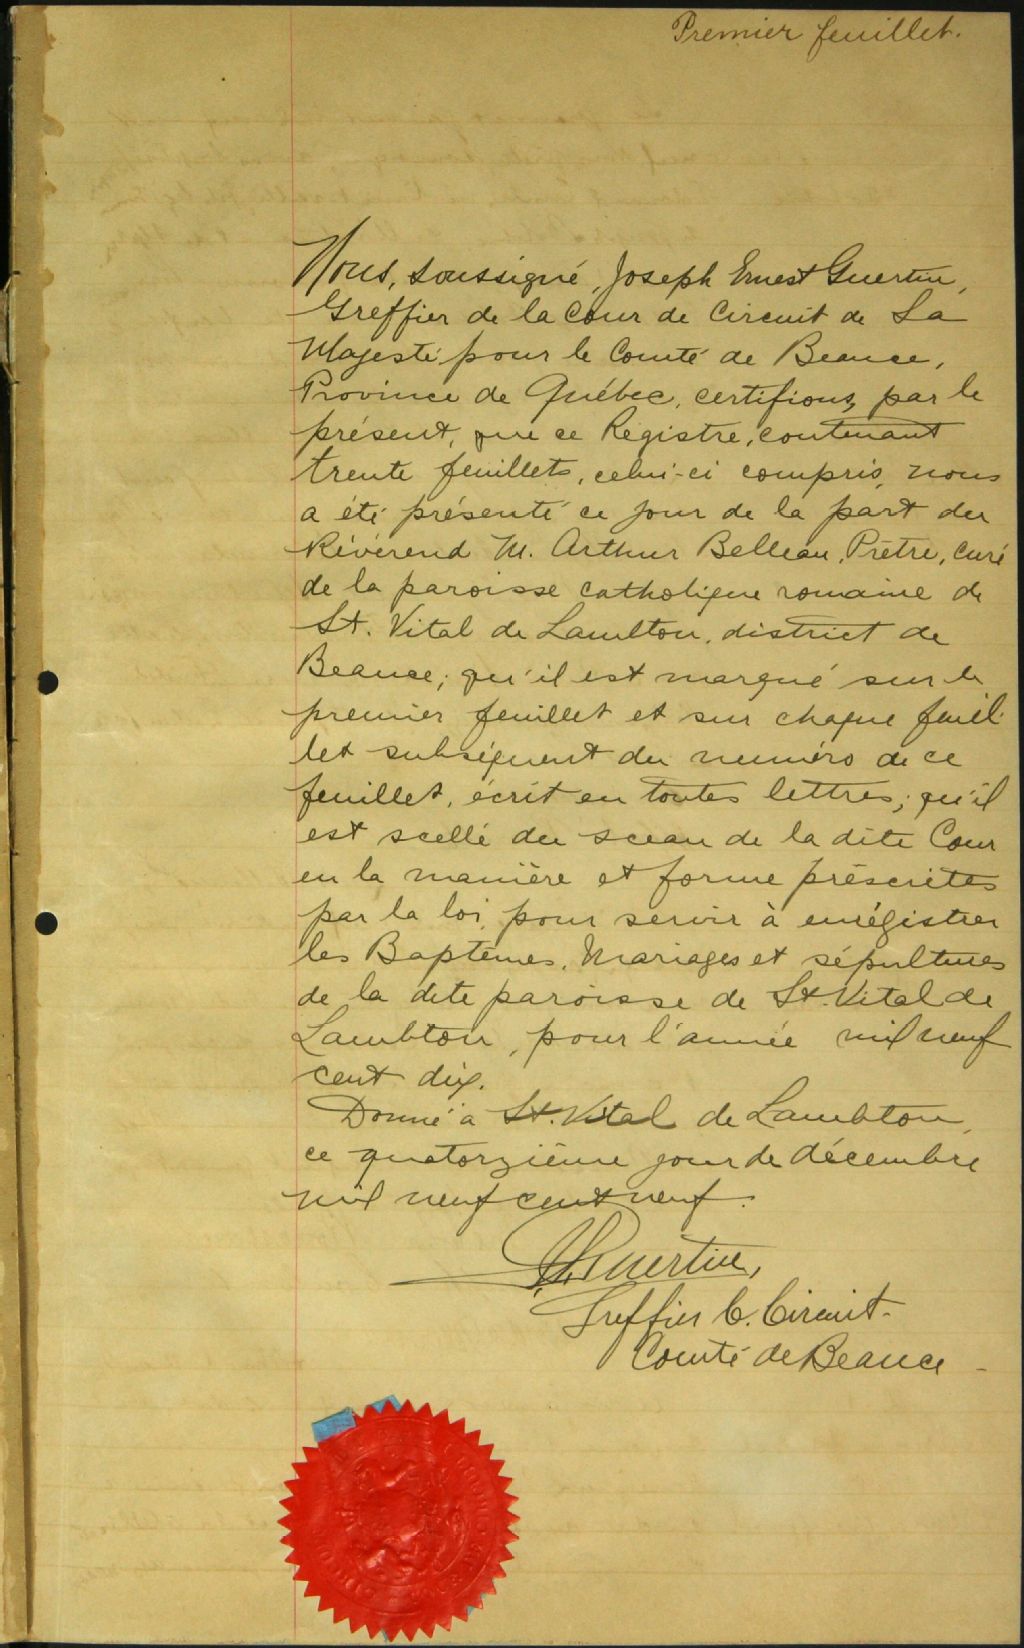 Premier feuillet.
Nous, soussigné, Joseph Ernest Guertin,
Greffier de la Cour de Circuit de Sa
Majesté pour le Comté de Beauce,
Province de Québec, certifions, par le
présent, que ce Régistre, contenant
trente feuillets, celui-ci compris, nous
a été présenté ce jour de la part du
Révérend M. Arthur Belleau, Prêtre, curé
de la paroisse catholique romaine de
St. Vital de Lambton, district de
Beauce; qu'il est marqué sur le
premier feuillet et sur chaque feuil-
let subséquent du numéro de ce
feuillet, écrit en toutes lettres; qu'il
est scellé du sceau de la dite Cour
en la manière et forme préscrites
par la loi, pour servir à enrégistrer
les Baptêmes, Mariages et sépultures
de la dite paroisse de St. Vital de
Lambton, pour l'année mil neuf
cent dix.
Donné à St. Vital de Lambton,
ce quatorzième jour de décembre
mil neuf cent neuf.
Guertin,
Greffier C. Circuit-
Comté de Beauce-